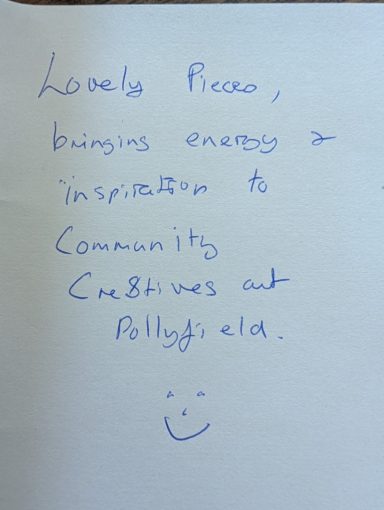 Lovely Pieces,
bringing energy &
inspiration to
Community
Cre8tives at
Pollyfield.